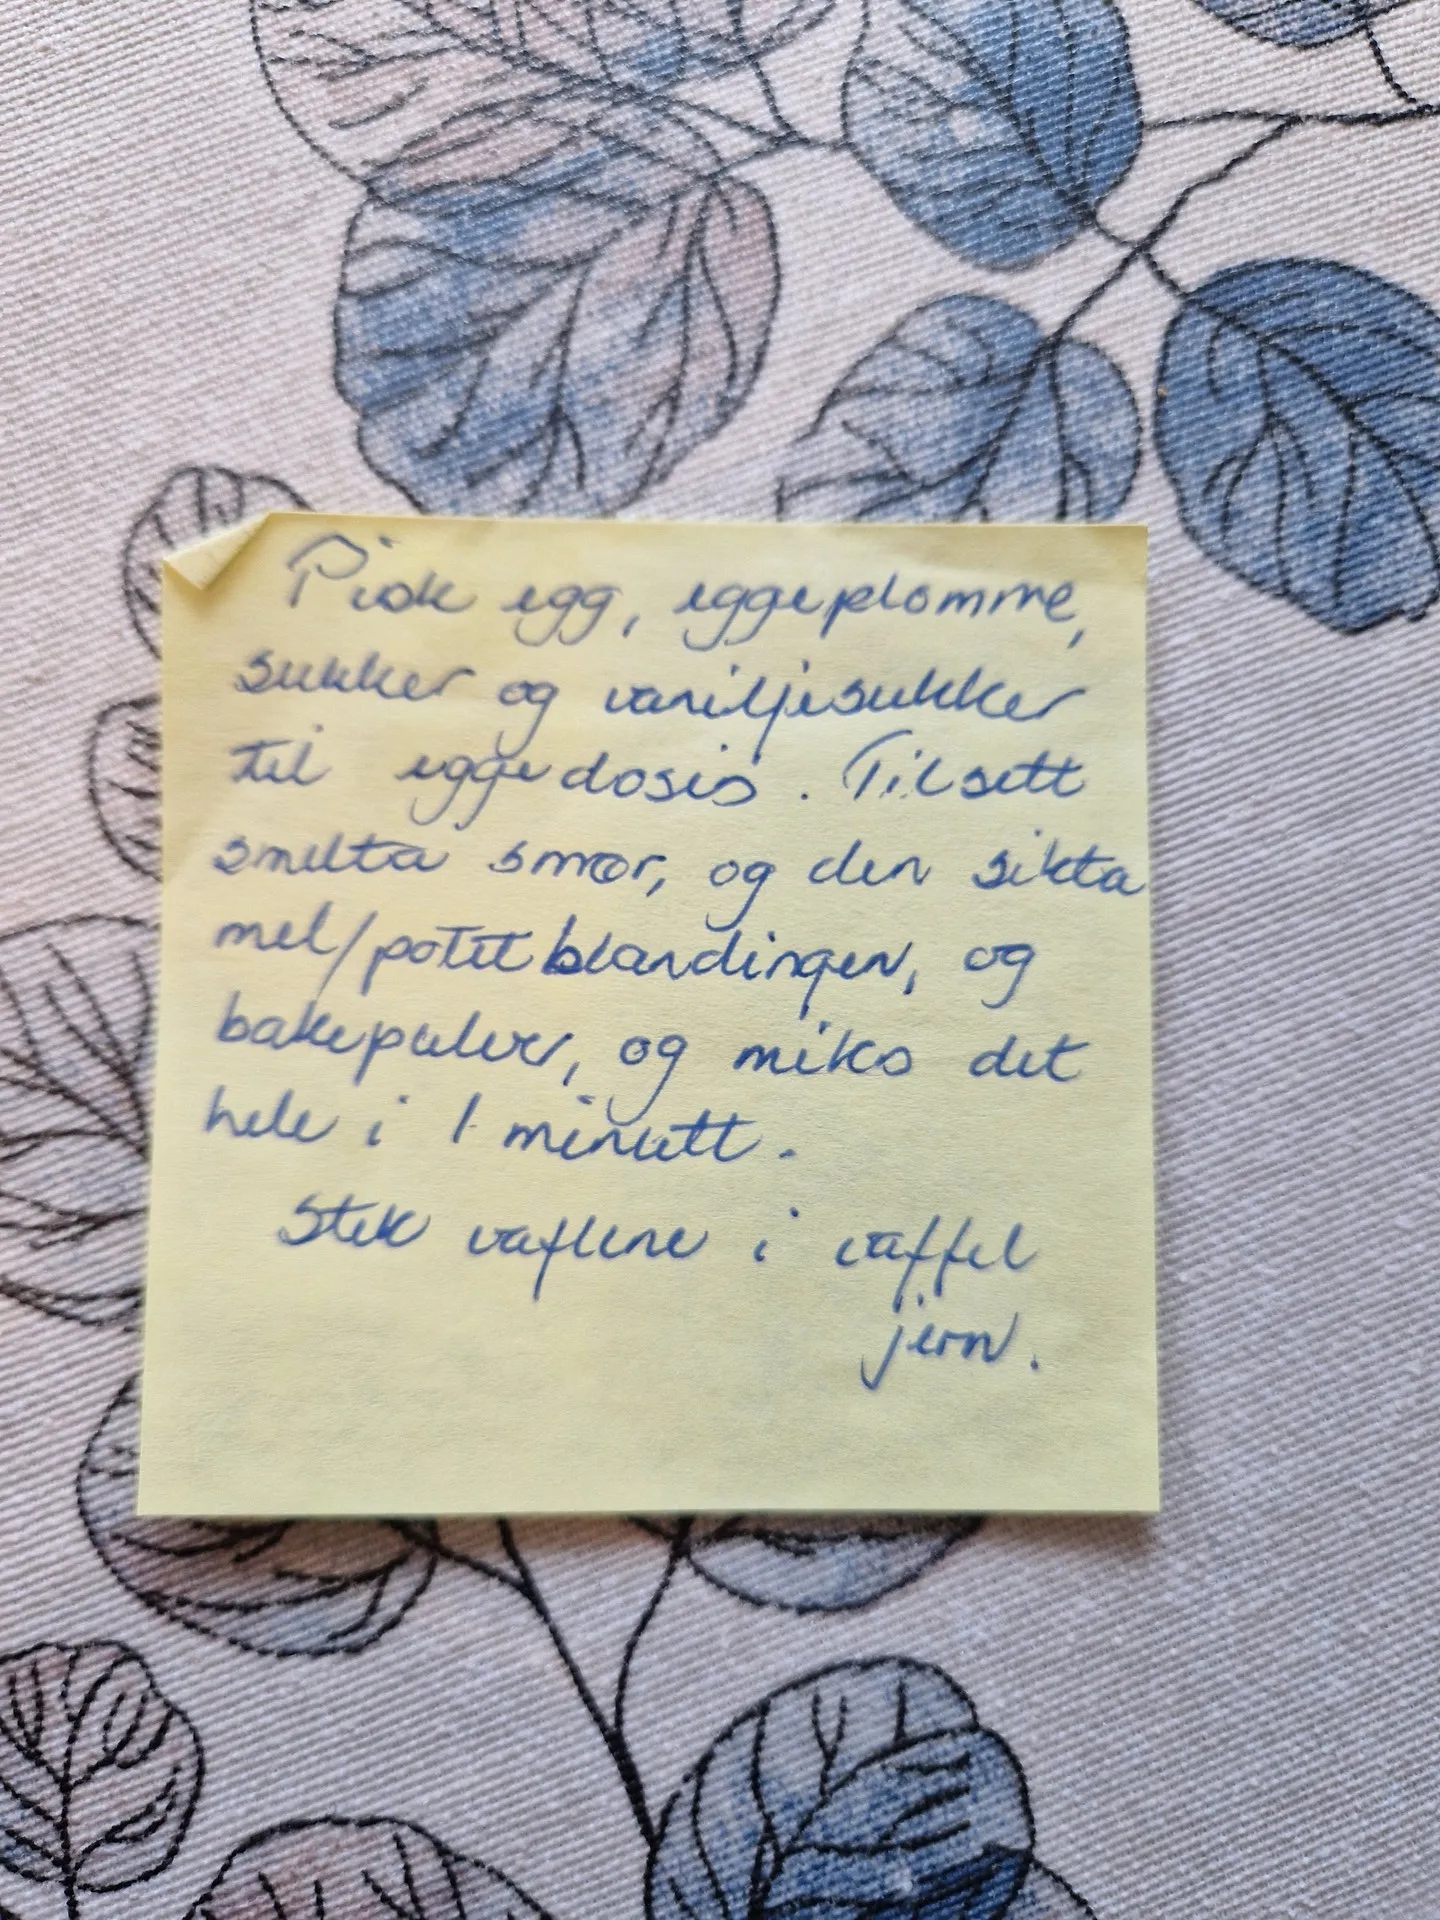 Pisk egg, eggeplomme,
sukker og vaniljesukker
til eggedosis. Tilsett
smelta smør, og den sikta
mel/potetblandingen, og
bakepulver, og miks det
hele i 1 minutt.
Stek vaflene i vaffel
jern.